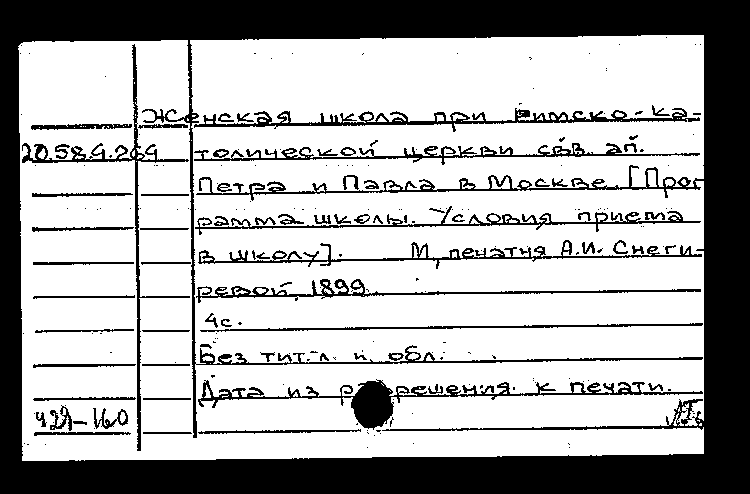 Женская школа при Римско-ка-
20.58.9.269 толической церкви св̃в ап̃.
Петра и Павла в Москве. [Прог
рамма школы. Условия приема
в школу]. М, печатня А.И. Снеги-
ревой, 1899.
4с.
Без тит. л. и обл.
Дата из разрешения к печати.